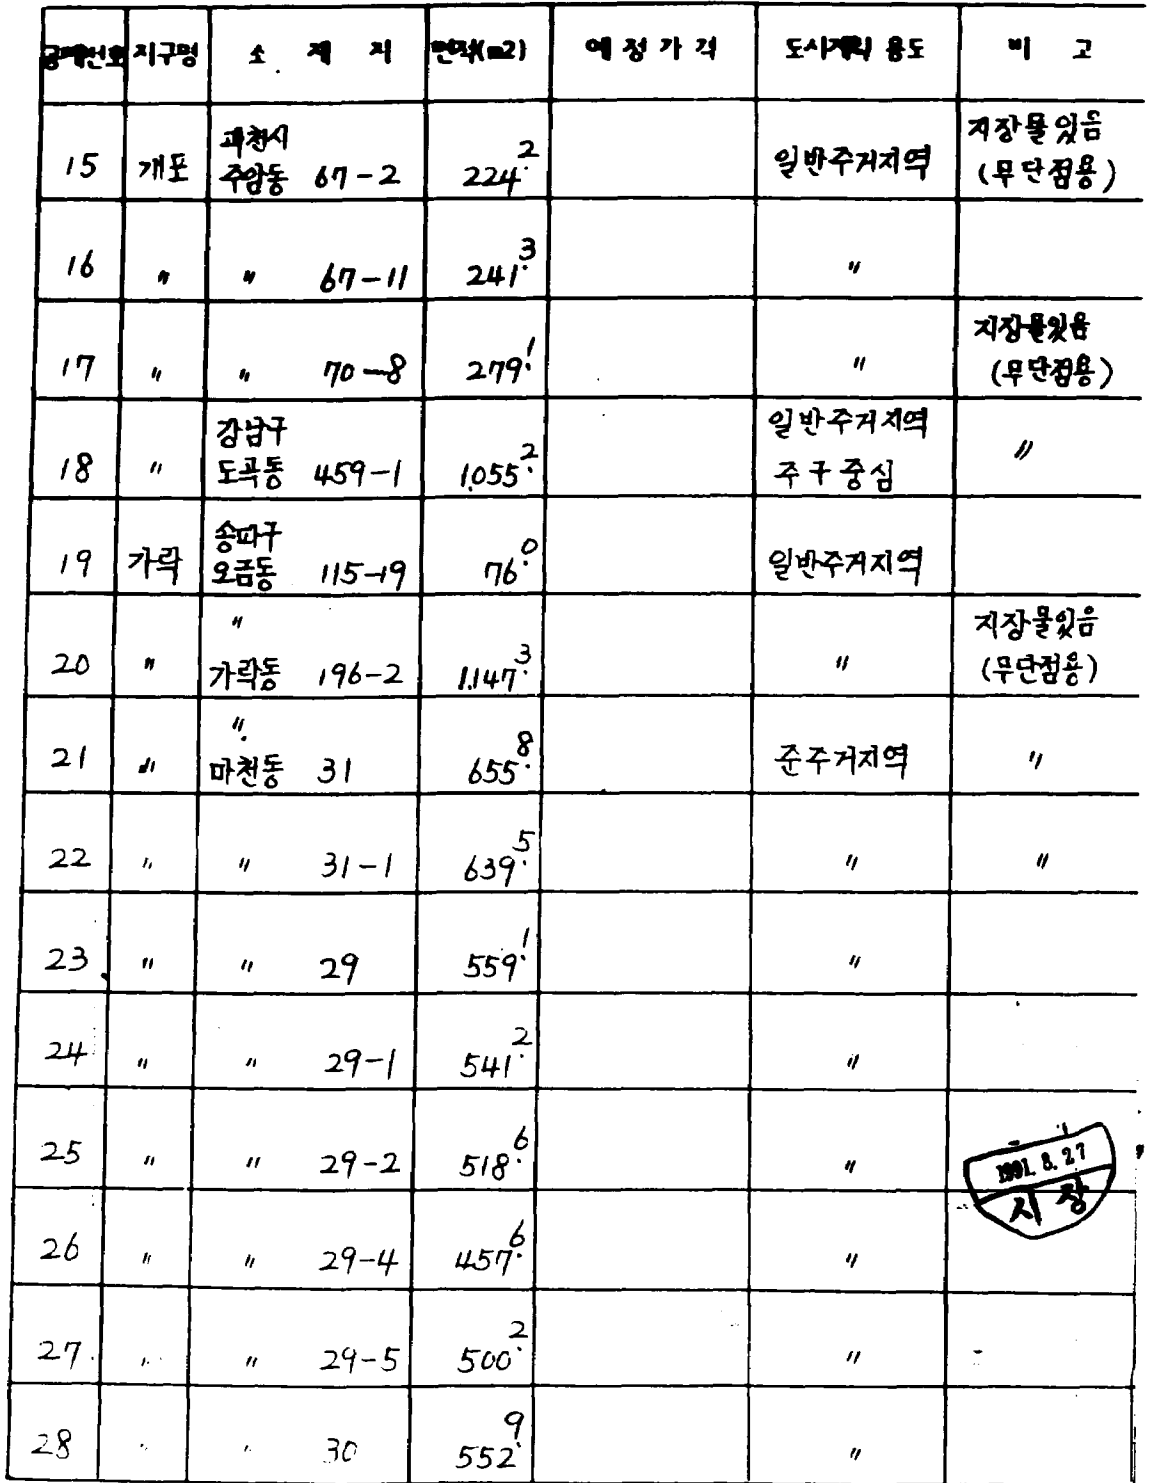 공매번호 지구명 소 재 지 면적(m2) 예 정 가 격 도시계획 용도 비 고
15 개포 과천시 주암동 67-2 224.2 일반주거지역 지장물있음 (무단점용)
16 〃 〃 67-11 241.3 〃
17 〃 〃 70-8 279.1 〃 지장물있음 (무단점용)
18 〃 강남구 도곡동 459-1 1,055.2 일반주거지역 주구중심 〃
19 가락 송파구 오금동 115-19 76.0 일반주거지역
20 〃 〃 가락동 196-2 1,147.3 〃 지장물있음 (무단점용)
21 〃 〃 마천동 31 655.8 준주거지역 〃
22 〃 〃 31-1 639.5 〃 〃
23 〃 〃 29 559.1 〃
24 〃 〃 29-1 541.2 〃
25 〃 〃 29-2 518.6 〃
1991. 8. 27
시장
26 〃 〃 29-4 457.6 〃
27 〃 〃 29-5 500.2 〃
28 〃 〃 30 552.9 〃